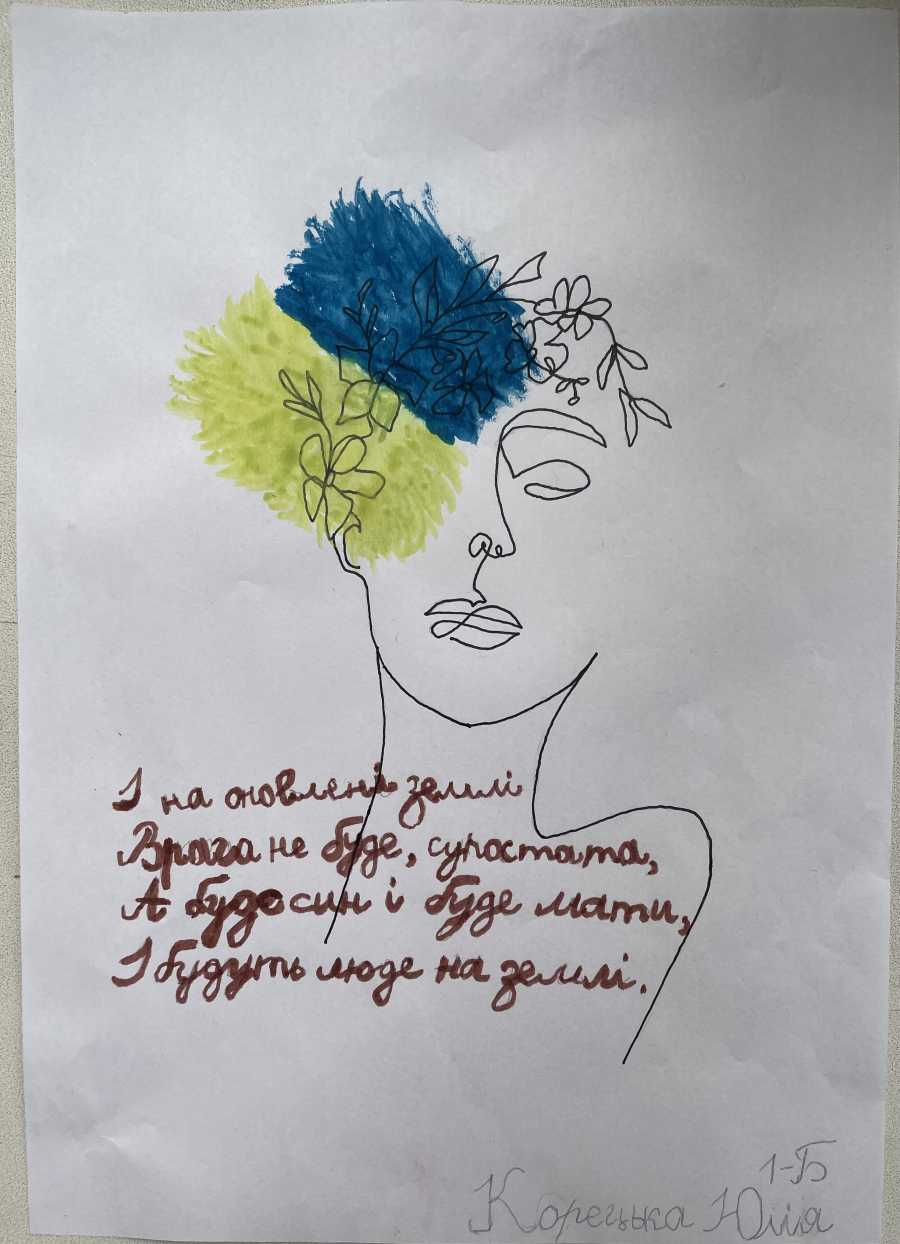 І на оновлені землі
Врага не буде, супостата,
А буде син і буде мати,
І будуть люде на землі.
1-Б
Корецька Юлія